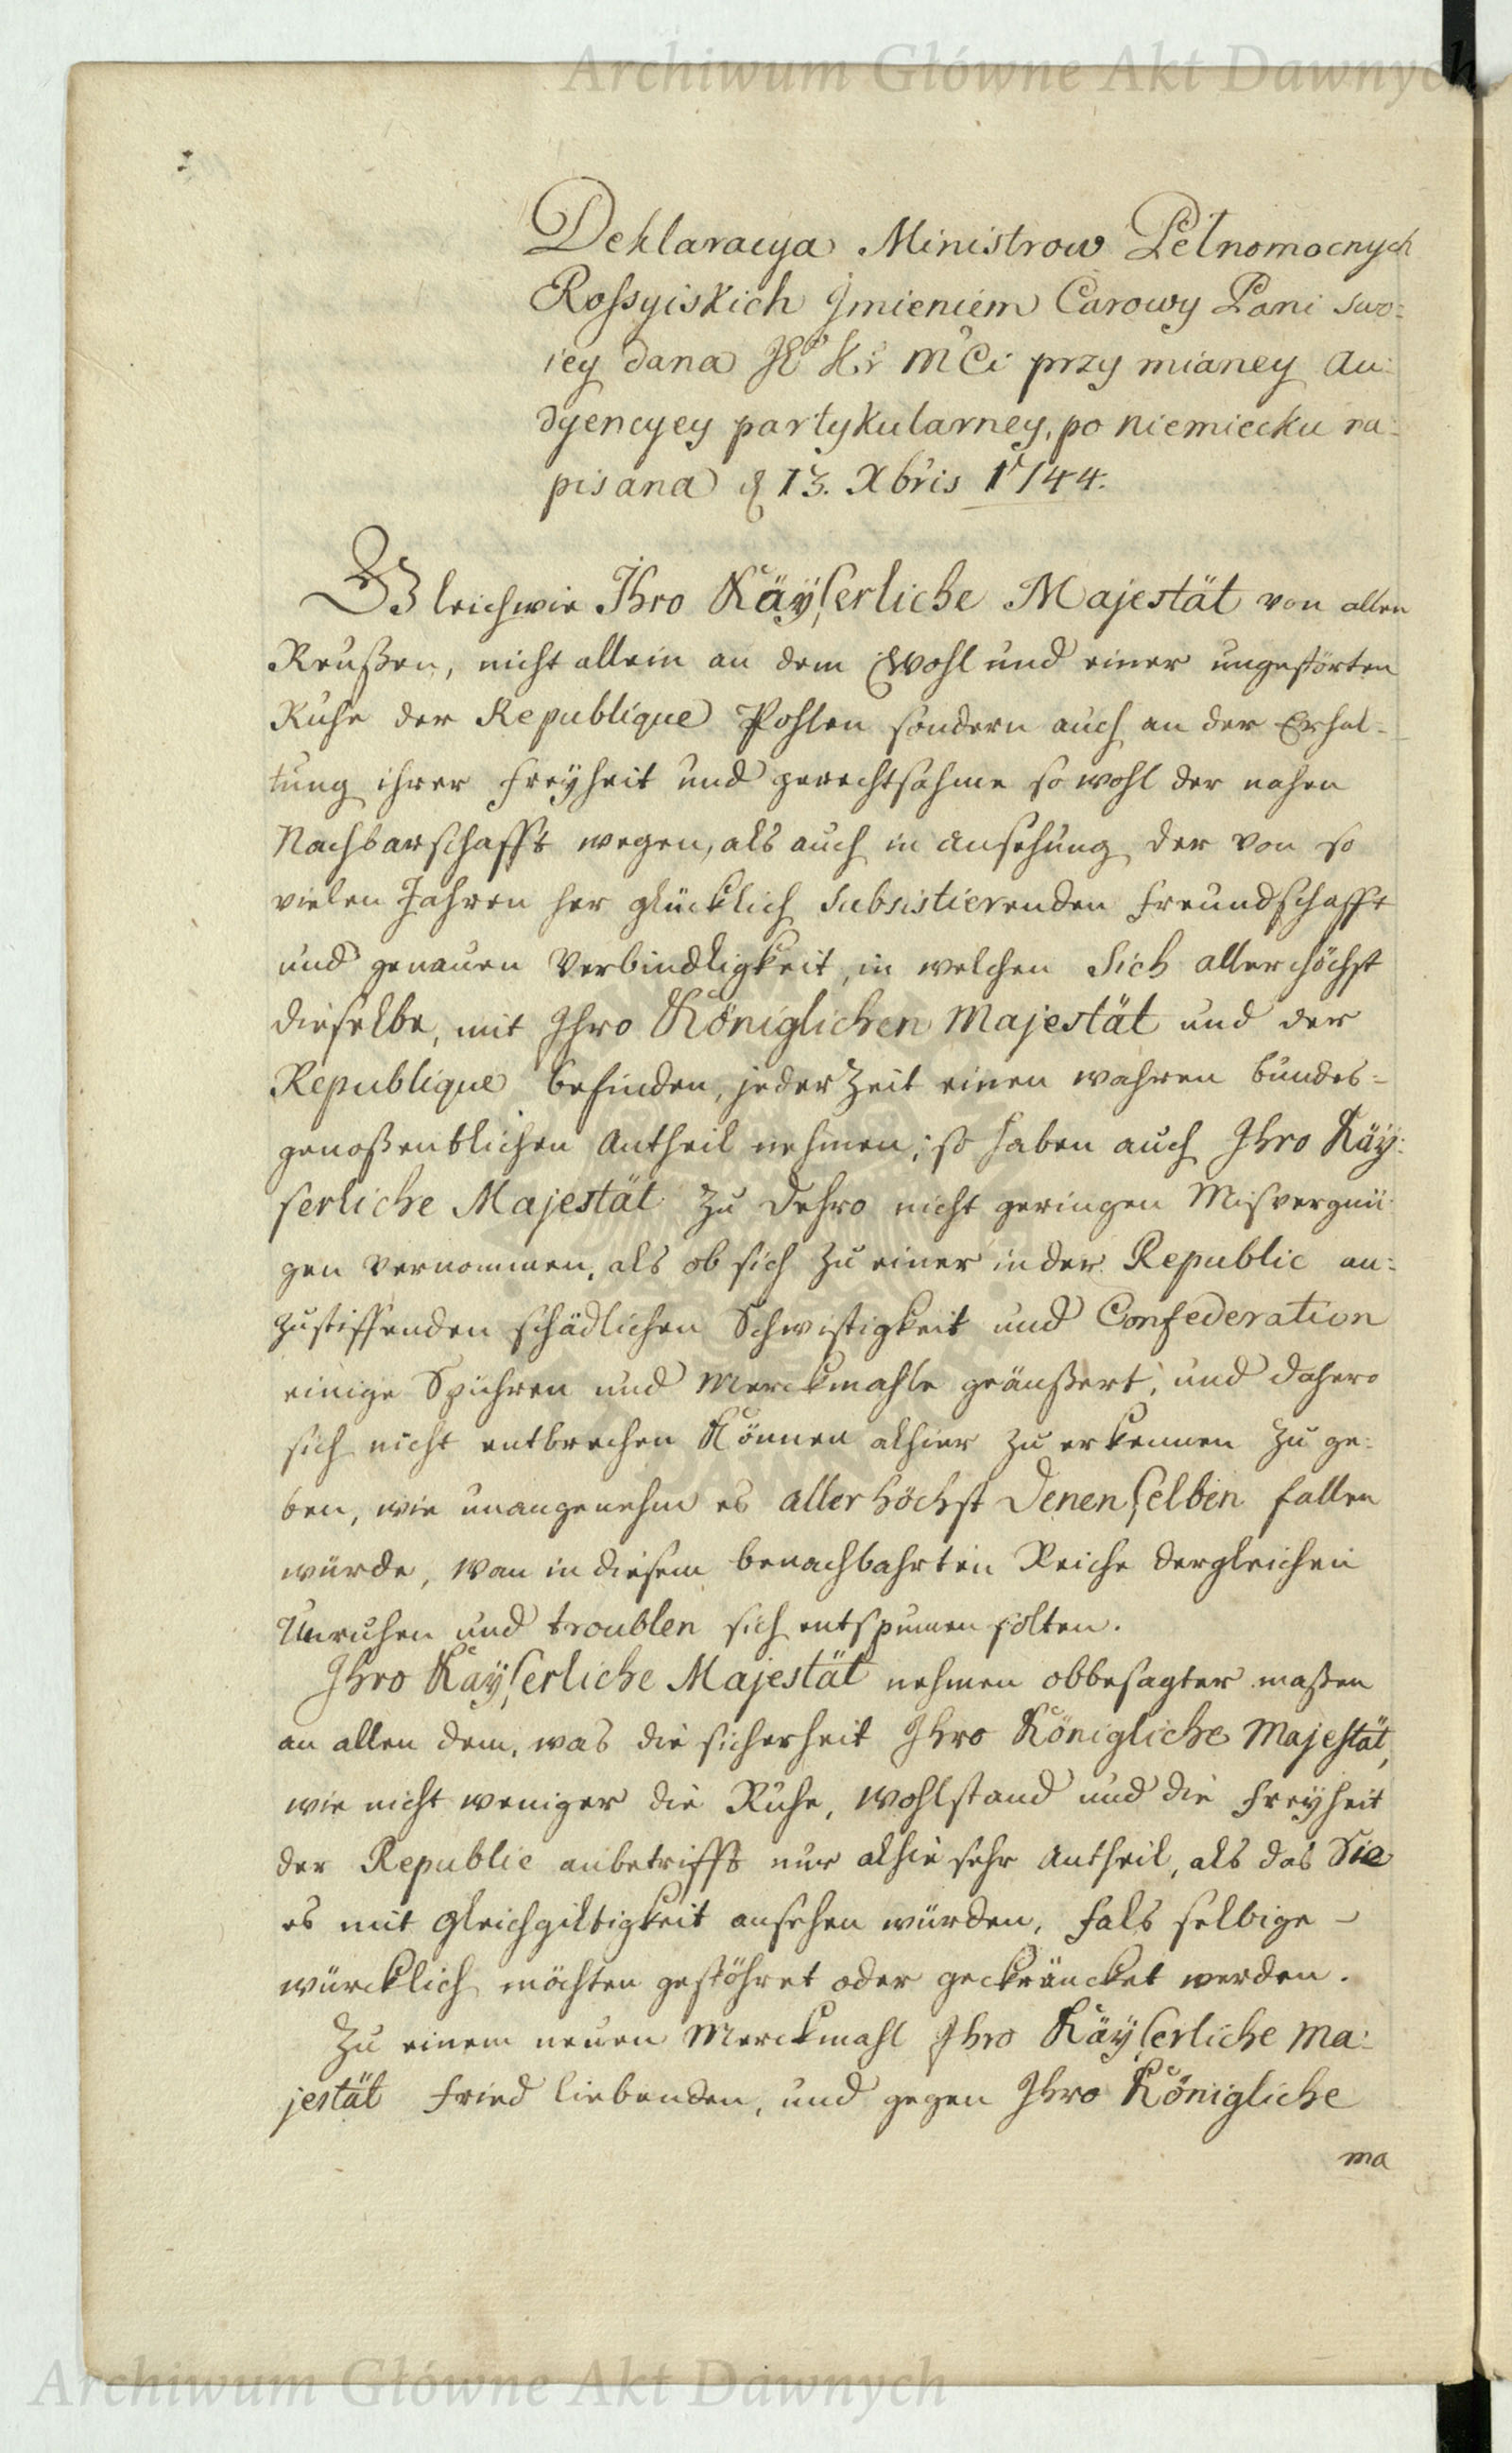 Archiwum Główne Akt Dawnych
Deklaracya Ministrow Pełnomocnych
Rossyiskich Jmieniem Carowy Pani swo:
iey dana JKr Mci przy mianey Au:
dyencyey partykularney, po niemiecku na:
pisana d 13. Xbris 1744.
Gleichwie Ihro Käyserliche Majestät von allen
Reußen, nicht allein an dem Wohl und einer ungestörten
Ruhe der Republique Pohlen sondern auch an der Erhal-
tung ihrer Freyheit und gerechtsahme so wohl der nahen
Nachbarschafft wegen, als auch in ansehung der von so
vielen Jahren her glücklich subsistierenden Freundschafft
und genauen Verbindligkeit, in welchen Sich allerhöchst
dieselbe, mit Ihro Königlichen Majestät und der
Republique befinden, jeder Zeit einen wahren bundes=
genoßentlichen Antheil nehmen; so haben auch Ihro Käy:
serliche Majestät zu dehro nicht geringen Misvergnü:
gen vernommen, als ob sich zu einer in der Republic an:
zustiffenden schädlichen Schwistigkeit und Confederation
einige Spuhren und Merckmahle geäußert, und dahero
sich nicht entbrechen Können alhier zu erkennen zu ge:
ben, wie unangenehm es allerhöchst Denenselben fallen
würde, wan in diesem benachbahrten Reiche dergleichen
Unruhen und troublen sich entspunnen solten.
Ihro Kayserliche Majestät nehmen obbesagter maßen
an allen dem, was die sicherheit Ihro Königliche Majestät,
wie nicht weniger die Ruhe, Wohlstand und die Freyheit
der Republic anbetrifft nur alhie sehr Antheil, als das Sie
es mit Gleichgiltigkeit ansehen würden, fals selbige -
würcklich möchten gestöhret oder geckräncket werden.
Zu einem neuen Merckmahl Ihro Käyserliche Ma:
jestät Fried liebenden, und gegen Ihro Königliche
ma
Archiwum Główne Akt Dawnych